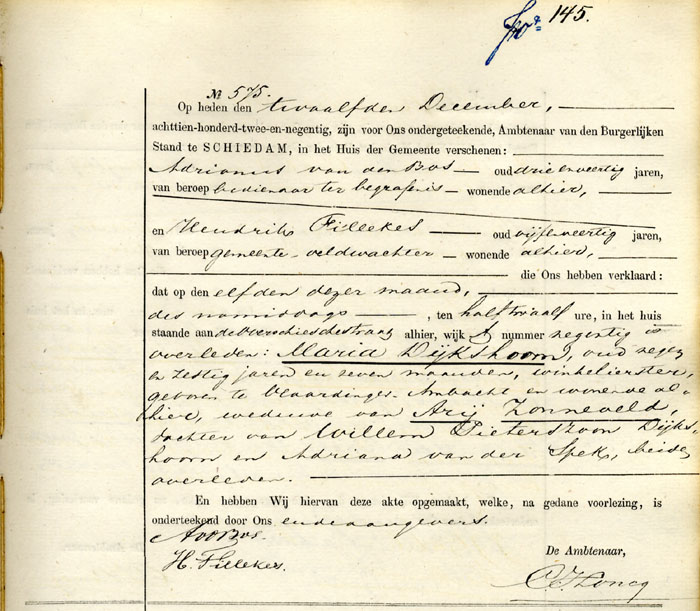 Fo. 145.
No 575.
Op heden den twaalfden December,
achttien-honderd-twee-en-negentig, zijn voor Ons ondergeteekende, Ambtenaar van den Burgerlijken
Stand te SCHIEDAM, in het Huis der Gemeente verschenen:
Adrianus van den Bos oud drie en veertig jaren,
van beroep bedienaar ter begrafenis wonende alhier,
en Hendrik Fillekes oud vijf en veertig jaren,
van beroep gemeente-veldwachter wonende alhier,
die Ons hebben verklaard:
dat op den elfden dezer maand,
des namiddags, ten half twaalf ure, in het huis
staande aan de Overschiesche straat alhier, wijk nummer negentig is
overleden: Maria Dijkshoorn, oud negen
en zestig jaren en zeven maanden, winkelierster,
geboren te Vlaardinger-Ambacht en wonende al-
hier, weduwe van Arij Zonneveld,
dochter van Willem Pieterszoon Dijks-
hoorn en Adriana van der Spek, beiden
overleden.
En hebben Wij hiervan deze akte opgemaakt, welke, na gedane voorlezing, is
onderteekend door Ons en de aangevers.
AvdBos.
H. Fillekes.
De Ambtenaar,